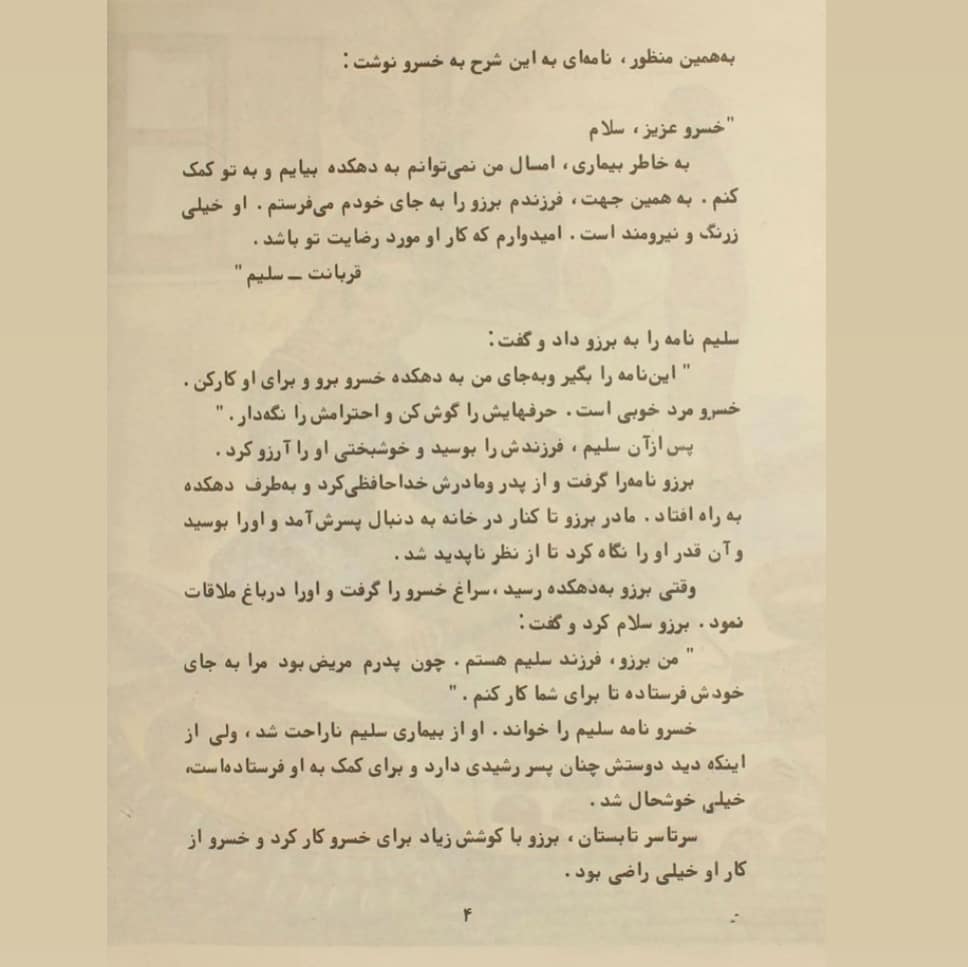 به‌همین منظور، نامه‌ای به این شرح به خسرو نوشت:
"خسرو عزیز، سلام
به خاطر بیماری، امسال من نمی‌توانم به دهکده بیایم و به تو کمک
کنم. به همین جهت، فرزندم برزو را به جای خودم می‌فرستم. او خیلی
زرنگ و نیرومند است. امیدوارم که کار او مورد رضایت تو باشد.
قربانت ــ سلیم"
سلیم نامه را به برزو داد و گفت:
"این‌نامه را بگیر وبه‌جای من به دهکده خسرو برو و برای او کارکن.
خسرو مرد خوبی است. حرفهایش را گوش کن و احترامش را نگه‌دار."
پس ازآن سلیم، فرزندش را بوسید و خوشبختی او را آرزو کرد.
برزو نامه‌را گرفت و از پدر ومادرش خداحافظی‌کرد و به‌طرف دهکده
به راه افتاد. مادر برزو تا کنار در خانه به دنبال پسرش‌آمد و اورا بوسید
و آن قدر او را نگاه کرد تا از نظر ناپدید شد.
وقتی برزو به‌دهکده رسید، سراغ خسرو را گرفت و اورا درباغ ملاقات
نمود. برزو سلام کرد و گفت:
"من برزو، فرزند سلیم هستم. چون پدرم مریض بود مرا به جای
خودش فرستاده تا برای شما کار کنم."
خسرو نامه سلیم را خواند. او از بیماری سلیم ناراحت شد، ولی از
اینکه دید دوستش چنان پسر رشیدی دارد و برای کمک به او فرستاده‌است،
خیلی خوشحال شد.
سرتاسر تابستان، برزو با کوشش زیاد برای خسرو کار کرد و خسرو از
کار او خیلی راضی بود.
۴